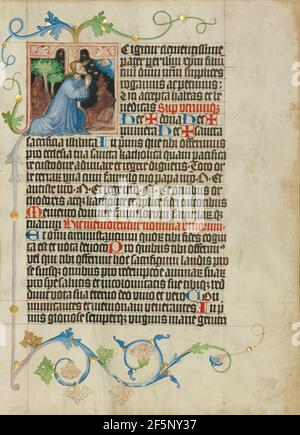 E igitur clementissime
pater per ihm xpm filiu
tuu dnm nrm supplices
rogamus ac petimus
uti accepta habeas et be
nedicas Sup utrumque
Hec ✠ dona Hec ✠
munera Hec ✠ sancta
sacrificia illibata In primis que tibi offerimus
pro ecclesia tua sancta katholica quam pacificare
custodire adunare et regere digneris Toto or
be terrarum una cum famulo tuo papa nro N Et
antistite nro N Et rege nro N et omnibus or
thodoxis atqz katholice et aplice fidei cultoribus
Memento domine famulorum famularumqz
tuarum Hic memorentur nomina vivorum
Et omnium circumastantium quorum tibi fides cogni
ta est et nota devotio Pro quibus tibi offerimus
vel qui tibi offerunt hoc sacrificium laudis pro
se suisqz omnibus pro redempcoe animarum sua
rum pro spe salutis et incolumitatis sue tibiqz red
dunt vota sua eterno deo vivo et vero Com
municantes et memoriam venerantes In pri
mis gloriose semperqz virginis marie genitri
alamy
Image ID: 2F5NY37
www.alamy.com